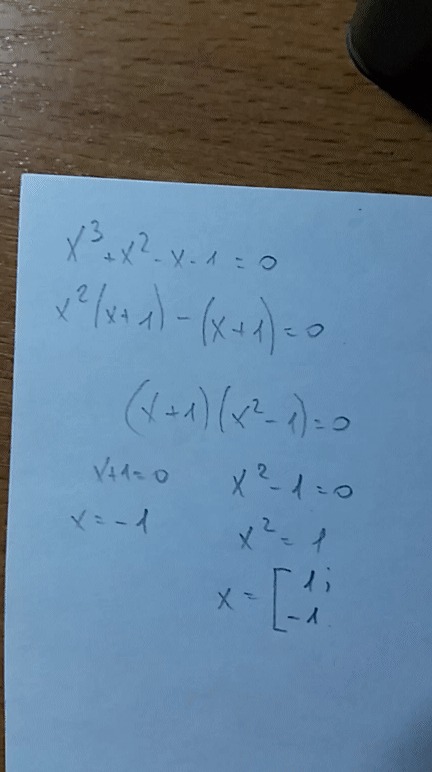 x³ + x² - x - 1 = 0
x²(x+1) - (x+1) = 0
(x+1)(x² - 1) = 0
x+1=0 x² - 1 = 0
x = -1 x² = 1
x = [ 1;
-1